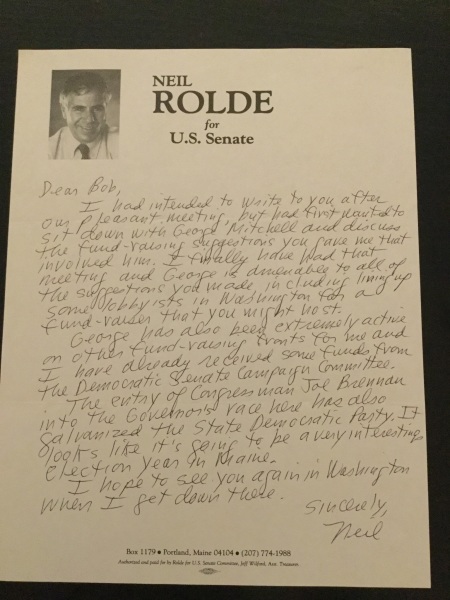 NEIL
ROLDE
for
U.S. Senate
Dear Bob,
I had intended to write to you after
our pleasant meeting, but had first wanted to
sit down with George Mitchell and discuss
the fund-raising suggestions you gave me that
involved him. I finally have had that
meeting and George is amenable to all of
the suggestions you made, including lining up
some lobbyists in Washington for a
fund-raiser that you might host.
George has also been extremely active
on other fund-raising fronts for me and
I have already received some funds from
the Democratic Senate Campaign Committee.
The entry of Congressman Joe Brennan
into the Governor's race here has also
galvanized the State Democratic Party. It
looks like it's going to be a very interesting
election year in Maine.
I hope to see you again in Washington
when I get down there.
Sincerely,
Neil
Box 1179 • Portland, Maine 04104 • (207) 774-1988
Authorized and paid for by Rolde for U.S. Senate Committee, Jeff Wilford, Asst. Treasurer